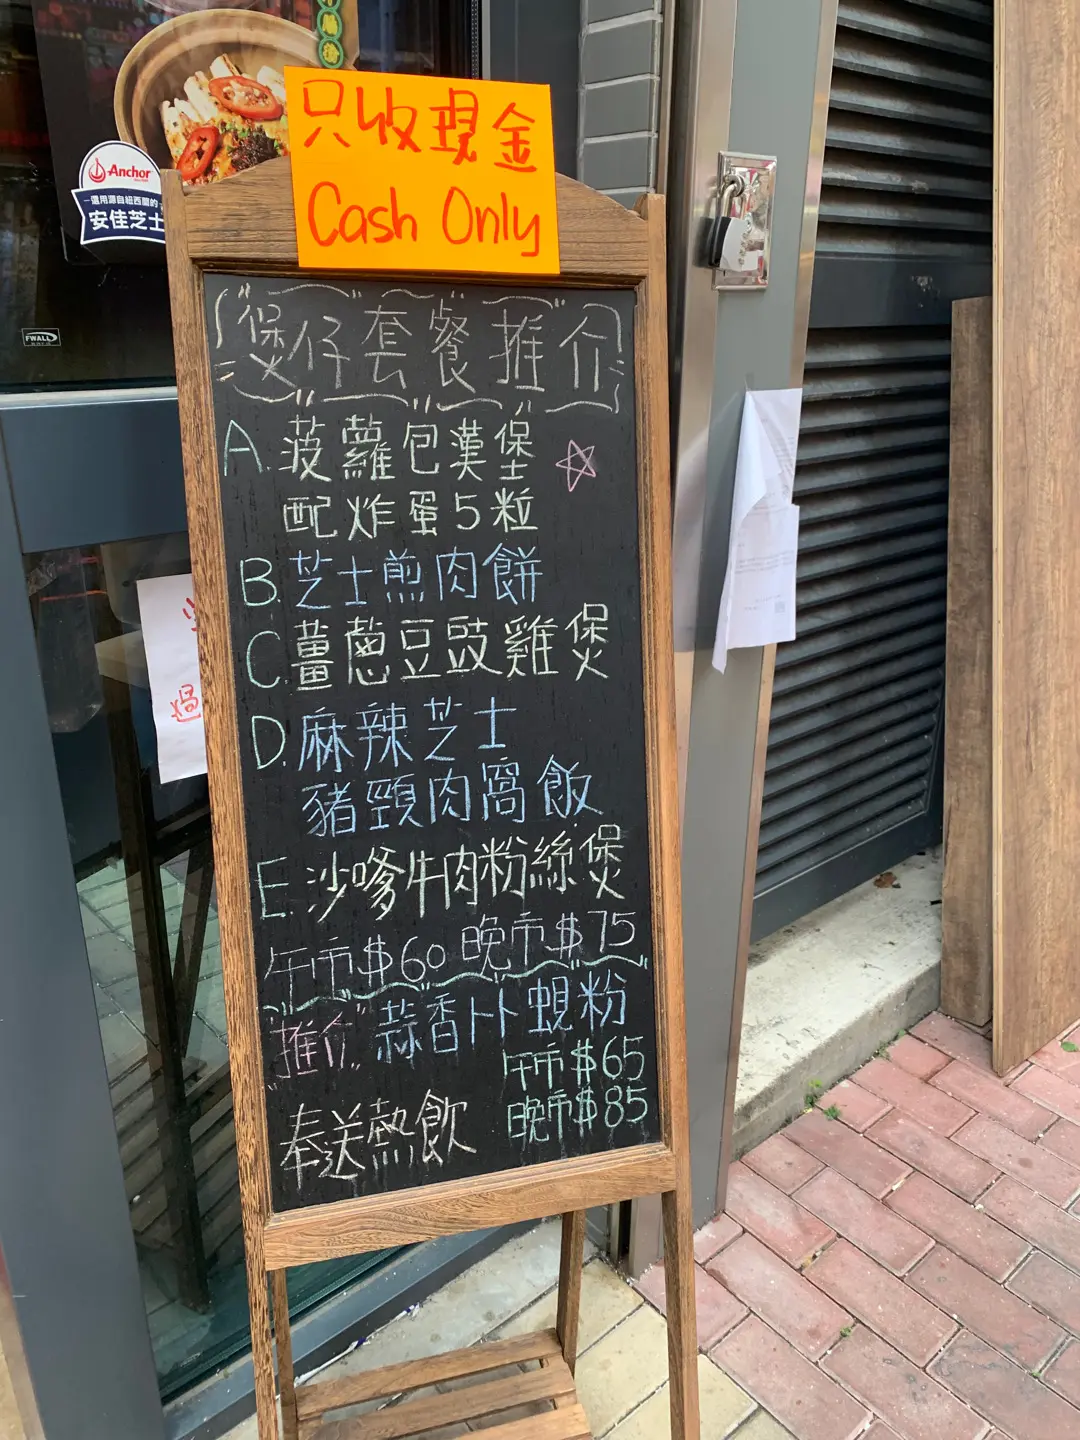 只收現金
Cash Only
Anchor
選用源自紐西蘭的
安佳芝士
FWALL
煲仔套餐推介
A. 菠蘿包漢堡
配炸蛋5粒
B. 芝士煎肉餅
C. 薑蔥豆豉雞煲
D. 麻辣芝士
豬頸肉窩飯
E. 沙嗲牛肉粉絲煲
午市$60 晚市$75
"推介" 蒜香卜卜蜆粉
午市$65
晚市$85
奉送熱飲
過